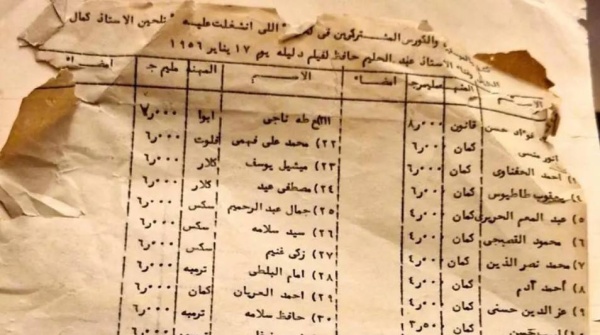 والكورس المشتركين فى "اللى انشغلت عليه" تلحين الاستاذ كمال
الاستاذ عبد الحليم حافظ لفيلم دليله يوم ١٧ يناير ١٩٥٦
الاســم المهنة مليم ج امضــاء الاســم المهنة مليم ج امضــاء
فؤاد حسن قانون ٨ر٠٠٠ طه ناجى ابوا ٧ر٠٠٠
انور منسى كمان ٦ر٠٠٠ (٢٢ محمد على فهمى فلوت ٦ر٠٠٠
احمد الحفناوى كمان ٦ر٠٠٠ (٢٣ ميشيل يوسف كلار ٦ر٠٠٠
يعقوب طاطيوس كمان ٦ر٠٠٠ (٢٤ مصطفى عيد كلار ٦ر٠٠٠
(٥ عبد المنعم الحريرى كمان ٤ر٠٠٠ (٢٥ جمال عبد الرحيم سكس ٦ر٠٠٠
(٦ محمود القصبجى كمان ٤ر٠٠٠ (٢٦ سيد سلامه سكس ٦ر٠٠٠
(٧ محمد نصر الدين كمان ٤ر٠٠٠ (٢٧ زكى غنيم سكس ٦ر٠٠٠
(٨ أحمد آدم كمان ٤ر٠٠٠ (٢٨ امام البلطى ترمبه ٦ر٠٠٠
(٩ عز الدين حسنى كمان ٤ر٠٠٠ (٢٩ احمد العريان كمان ٦ر٠٠٠
كمان (٣٠ حافظ سلامه ترمبه ٦ر٠٠٠